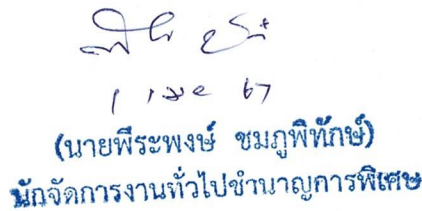 1 เมย 67
(นายพีระพงษ์ ชมภูพิทักษ์)
นักจัดการงานทั่วไปชำนาญการพิเศษ